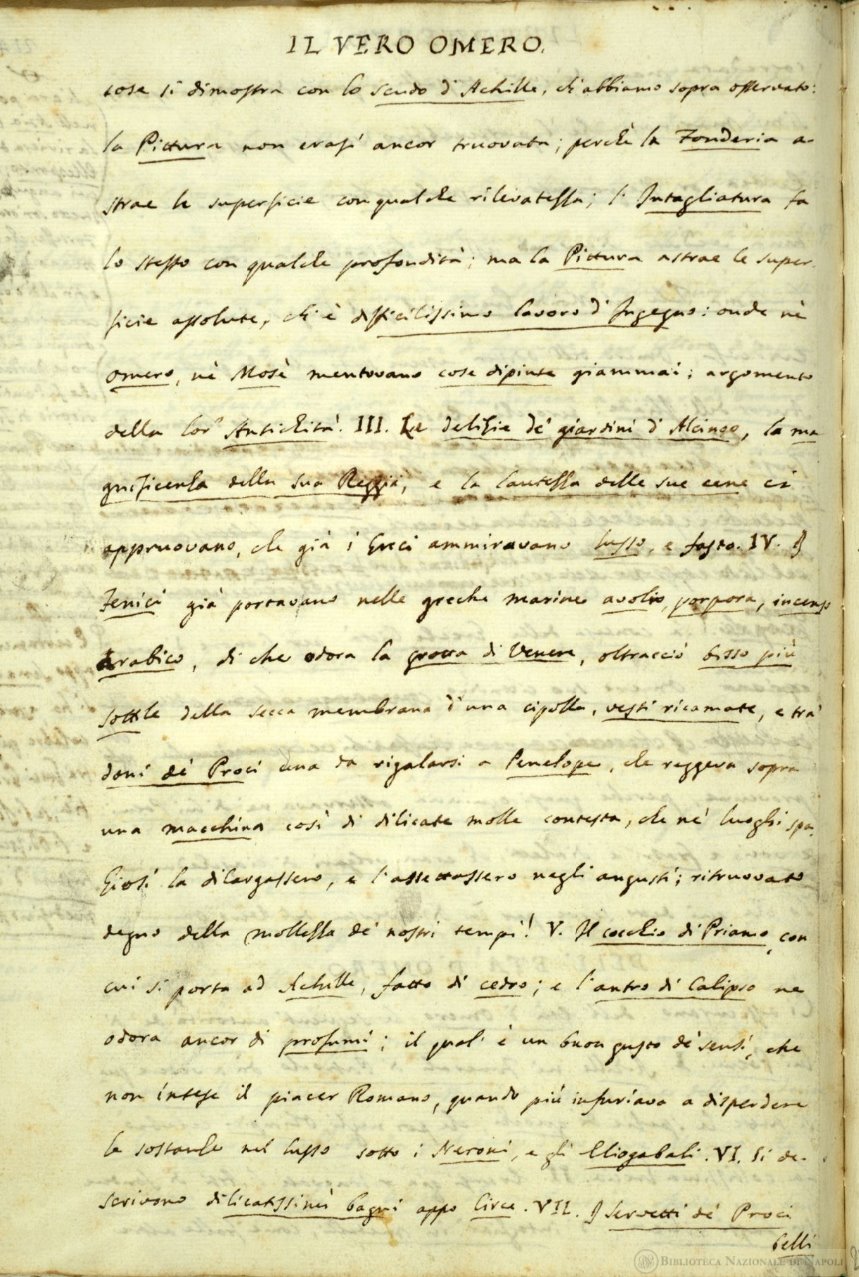 IL VERO OMERO.
cose si dimostra con lo scudo d'Achille, ch'abbiamo sopra osservato:
la Pictura non erasi ancor truovata; perchè la Fonderia a-
strae le superficie con qualche rilevatezza; l'Intagliatura fa
lo stesso con qualche profondità; ma la Pictura astrae le super-
ficie assolute, ch'è difficilissimo lavoro d'Ingegno: onde nè
Omero, nè Mosè mentovano cose dipinte giammai; argomento
della lor' Antichità. III. Le delizie de' giardini d'Alcinoo, la ma
gnificenza della sua Reggia, e la lautezza delle sue cene ci
appruovano, che già i Greci ammiravano lusso, e fasto. IV. I
Fenici già portavano nelle greche marine avolio, porpora, incenso
Arabico, di che odora la grotta di Venere, oltracciò bisso più
sottile della secca membrana d'una cipolla, vesti ricamate, e tra'
doni de' Proci una da rigalarsi a Penelope, che reggeva sopra
una macchina così di dilicate molle contesta, che ne' luoghi spa-
ziosi la dilargassero, e l'assettassero negli angusti; ritruovato
degno della mollezza de' nostri tempi! V. Il cocchio di Priamo, con
cui si porta ad Achille, fatto di cedro; e l'antro di Calipso ne
odora ancor di profumi; il qual' è un buon gusto de' sensi, che
non intese il piacer Romano, quando più infuriava a disperdere
le sostanze nel lusso sotto i Neroni, e gli Eliogabali. VI. Si de-
scrivono dilicatissimi bagni appo Circe. VII. I Servetti de' Proci
belli
BIBLIOTECA NAZIONALE DI NAPOLI